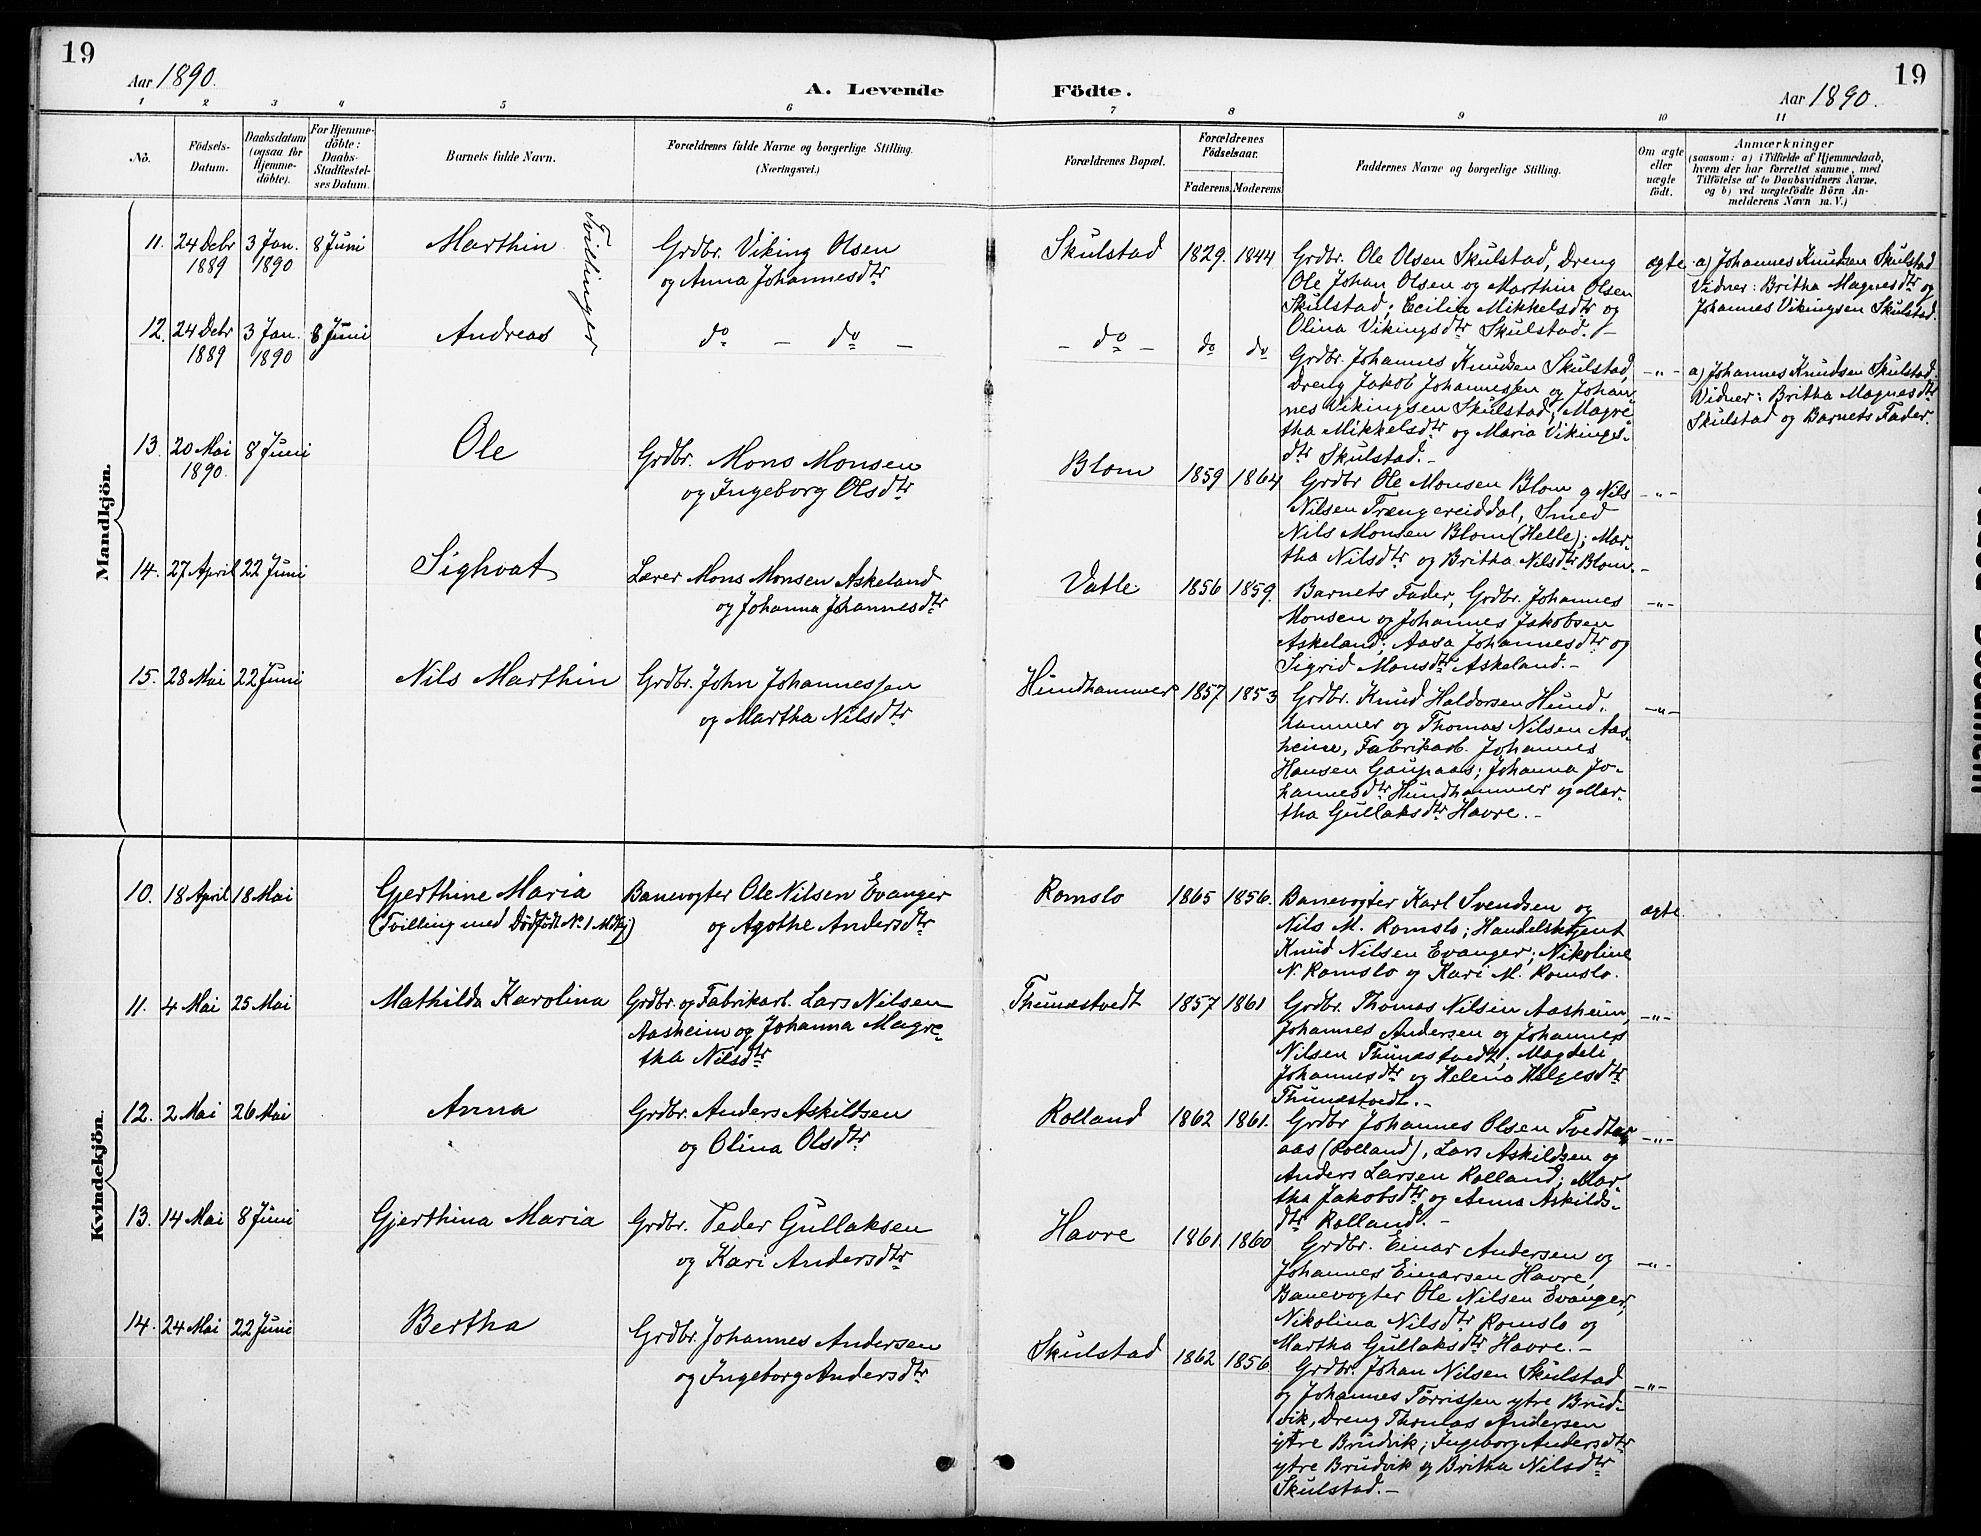 19
19
Aar 1890.
A. Levende Födte.
Aar 1890.
1 2 3 4 5 6 7 8 9 10 11
No.
Födsels-Datum.
Daabsdatum (ogsaa for Hjemme-döbte).
For Hjemme-döbte: Daabs-Stadfæstel-ses Datum.
Barnets fulde Navn.
Forældrenes fulde Navne og borgerlige Stilling. (Næringsvei.)
Forældrenes Bopæl.
Forældrenes Födselsaar.
Faderens. Moderens.
Faddernes Navne og borgerlige Stilling.
Om ægte eller uægte födt.
Anmærkninger
(saasom: a) i Tilfælde af Hjemmedaab,
hvem der har forrettet samme, med
Tilföielse af to Daabsvidners Navne,
og b) ved uægtefödte Börn An-
melderens Navn m. V.)
Mandkjön.
11. 24 Debr 1889 3 Jan. 1890 8 Juni Marthin
Tvillinger
Grdbr. Viking Olsen
og Anna Johannesdtr
Skulstad 1829. 1844
Grdbr. Ole Olsen Skulstad, Dreng
Ole Johan Olsen og Marthin Olsen
Skulstad; Cecilia Mikkelsdtr og
Olina Vikingsdtr Skulstad. –
ægte
a) Johannes Knudsen Skulstad
Vidner: Britha Magnesdtr og
Johannes Vikingsen Skulstad.
12. 24 Debr 1889 3 Jan. 1890 8 Juni Andreas
do – do –
– do – do do
Grdbr. Johannes Knudsen Skulstad,
Dreng Jakob Johannessen og Johan-
nes Vikingsen Skulstad; Magre-
tha Mikkelsdtr og Maria Vikings-
dtr Skulstad. –
–"–
a) Johannes Knudsen Skulstad.
Vidner: Britha Magnesdtr
Skulstad og Barnets Fader.
13. 20 Mai 1890. 8 Juni Ole
Grdbr. Mons Monsen
og Ingeborg Olsdtr
Blom 1859 1864
Grdbr Ole Monsen Blom og Nils
Nilsen Trængereiddal, Smed
Nils Monsen Blom (Helle); Mar-
tha Nilsdtr og Britha Nilsdtr Blom. –
–"–
14. 27 April 22 Juni Sighvat
Lærer Mons Monsen Askeland
og Johanna Johannesdtr
Vatle 1856 1859.
Barnets Fader, Grdbr. Johannes
Monsen og Johannes Jakobsen
Askeland; Aasa Johannesdtr og
Sigrid Monsdtr Askeland. –
–"–
15. 28 Mai 22 Juni Nils Marthin
Grdbr. John Johannessen
og Martha Nilsdtr
Hundhammer 1857 1853
Grdbr. Knud Haldorsen Hund-
hammer og Thomas Nilsen Aas-
heim, Fabrikarb. Johannes
Hansen Gaupaas; Johanna Jo-
hannesdtr Hundhammer og Mar-
tha Gullaksdtr Havre. –
–"–
Kvindekjön.
10. 18 April 18 Mai Gjerthine Maria
(Tvilling med Dödfödt No 1 Mdkj)
Banevogter Ole Nilsen Evanger
og Agothe Andersdtr
Romslo 1865 1856.
Banevogter Karl Svendsen og
Nils M. Romslo; Handelsbetjent
Knud Nilsen Evanger; Nikoline
N. Romslo og Kari M. Romslo.
ægte
11. 4 Mai 25 Mai Mathilda Karolina
Grdbr. og Fabrikarb. Lars Nilsen
Aasheim og Johanna Magre-
tha Nilsdtr
Thunestvedt 1857 1861
Grdbr. Thomas Nilsen Aasheim,
Johannes Andersen og Johannes
Nilsen Thunestvedt; Magdeli
Johannesdtr og Helena Helgesdtr
Thunestvedt. –
–"–
12. 2 Mai 26 Mai Anna
Grdbr. Anders Askildsen
og Olina Olsdtr
Rolland 1862 1861.
Grdbr Johannes Olsen Tvedter-
aas (Rolland), Lars Askildsen og
Anders Larsen Rolland; Mar-
tha Jakobsdtr og Anna Askilds-
dtr Rolland. –
–"–
13. 14 Mai 8 Juni Gjerthina Maria
Grdbr. Peder Gullaksen
og Kari Andersdtr
Havre 1861. 1860
Grdbr. Einar Andersen og
Johannes Einarsen Havre,
Banevogter Ole Nilsen Evanger;
Nikolina Nilsdtr Romslo og
Martha Gullaksdtr Havre. –
–"–
14. 24 Mai 22 Juni Bertha
Grdbr. Johannes Andersen
og Ingeborg Andersdtr
Skulstad 1862 1856
Grdbr. Johan Nilsen Skulstad
og Johannes Torrissen ytre Brud-
vik, Dreng Thomas Andersen
ytre Brudvik; Ingeborg Andersdtr
ytre Brudvik og Britha Nilsdtr
Skulstad. –
–"–